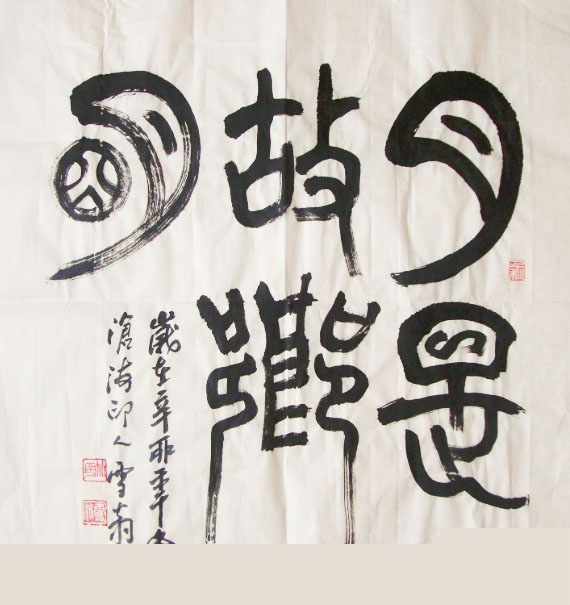 月是
故鄉
明
歲在辛卯年
滄海印人雪翁